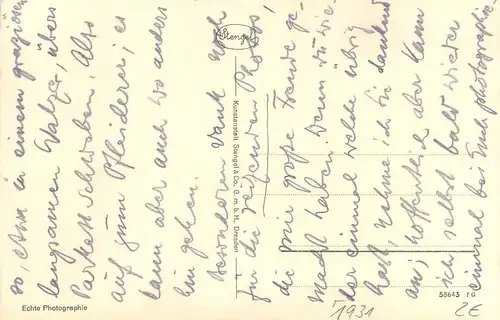 so, etwa in einem graziösen
langsamen Walzer, übers
Parkett schweben. Also
auf zum Pfleiderer; es
kann aber auch wo anders
hin gehen.
Besonderen Dank noch
für die reizenden Photos,
die mir große Freude ge-
macht haben. Wenn Du wie-
der einmal welche übrig
hast, nehme ich sie dankend
an; hoffentlich aber kann
ich selbst bald wieder
einmal bei Euch photographie
Stengel
Kunstanstalt Stengel & Co. G. m. b. H., Dresden
Echte Photographie
58643
1931
2€